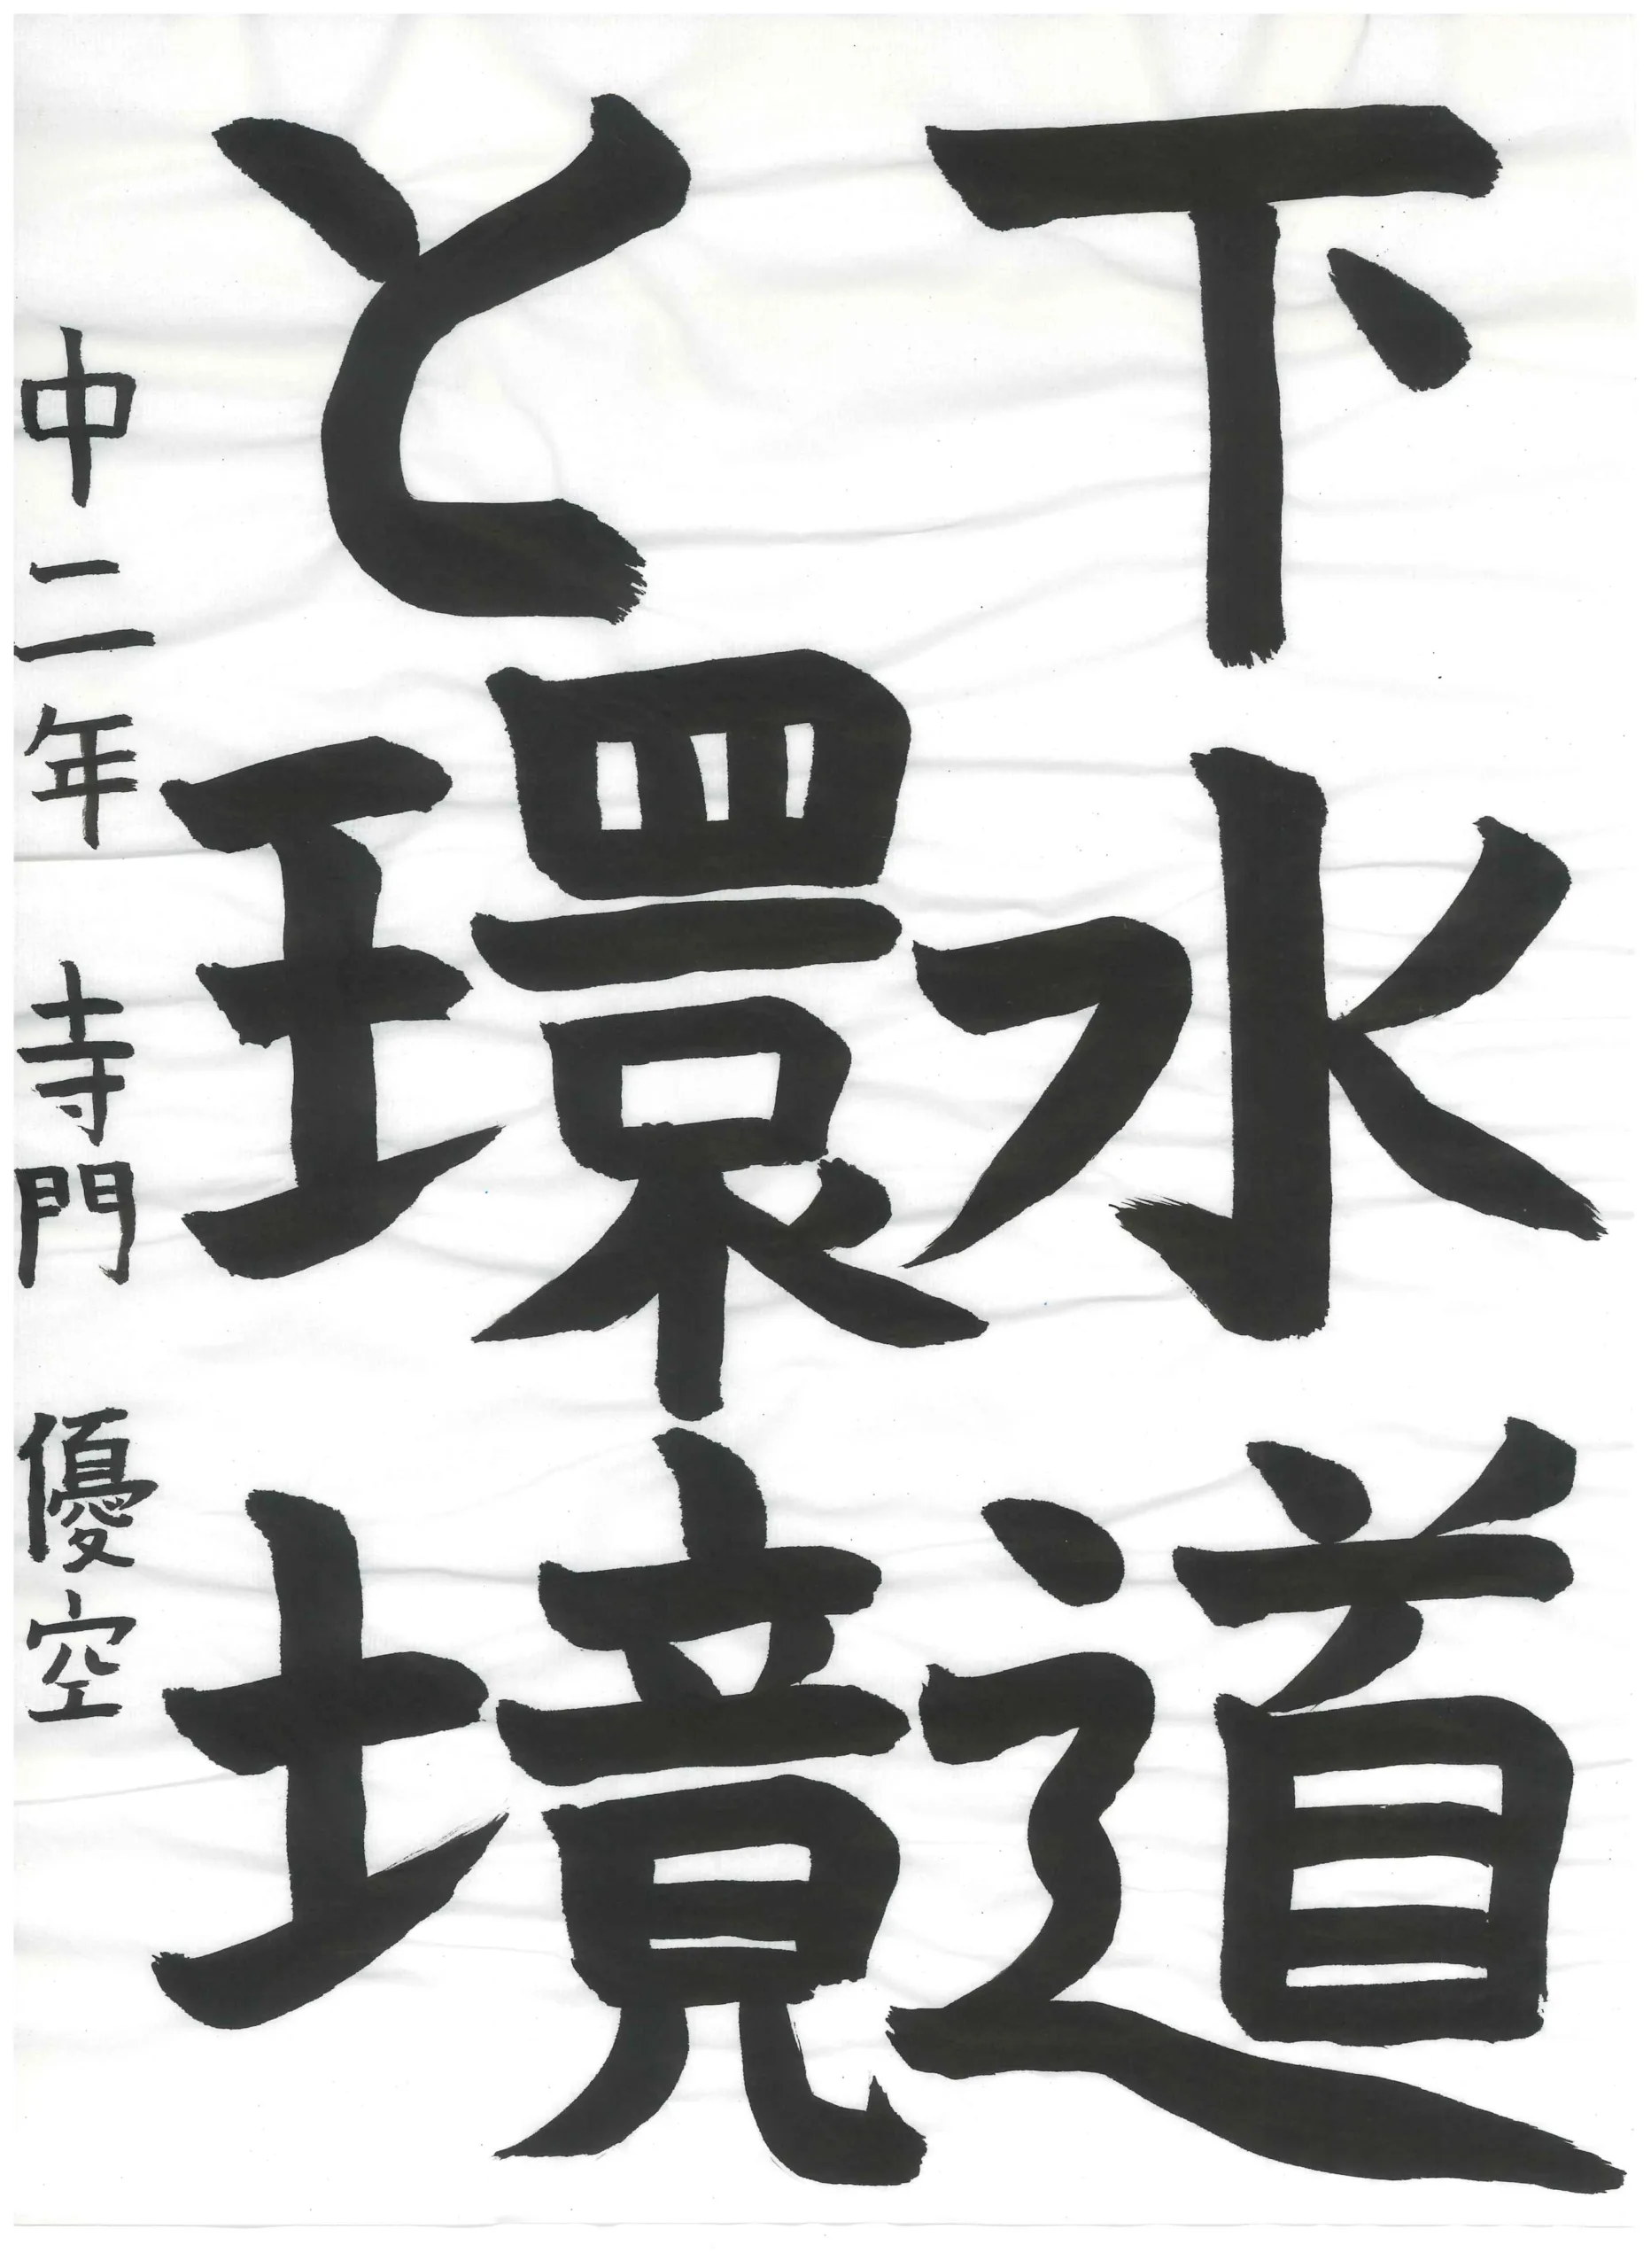 下水道
と環境
中二年 寺門 優空